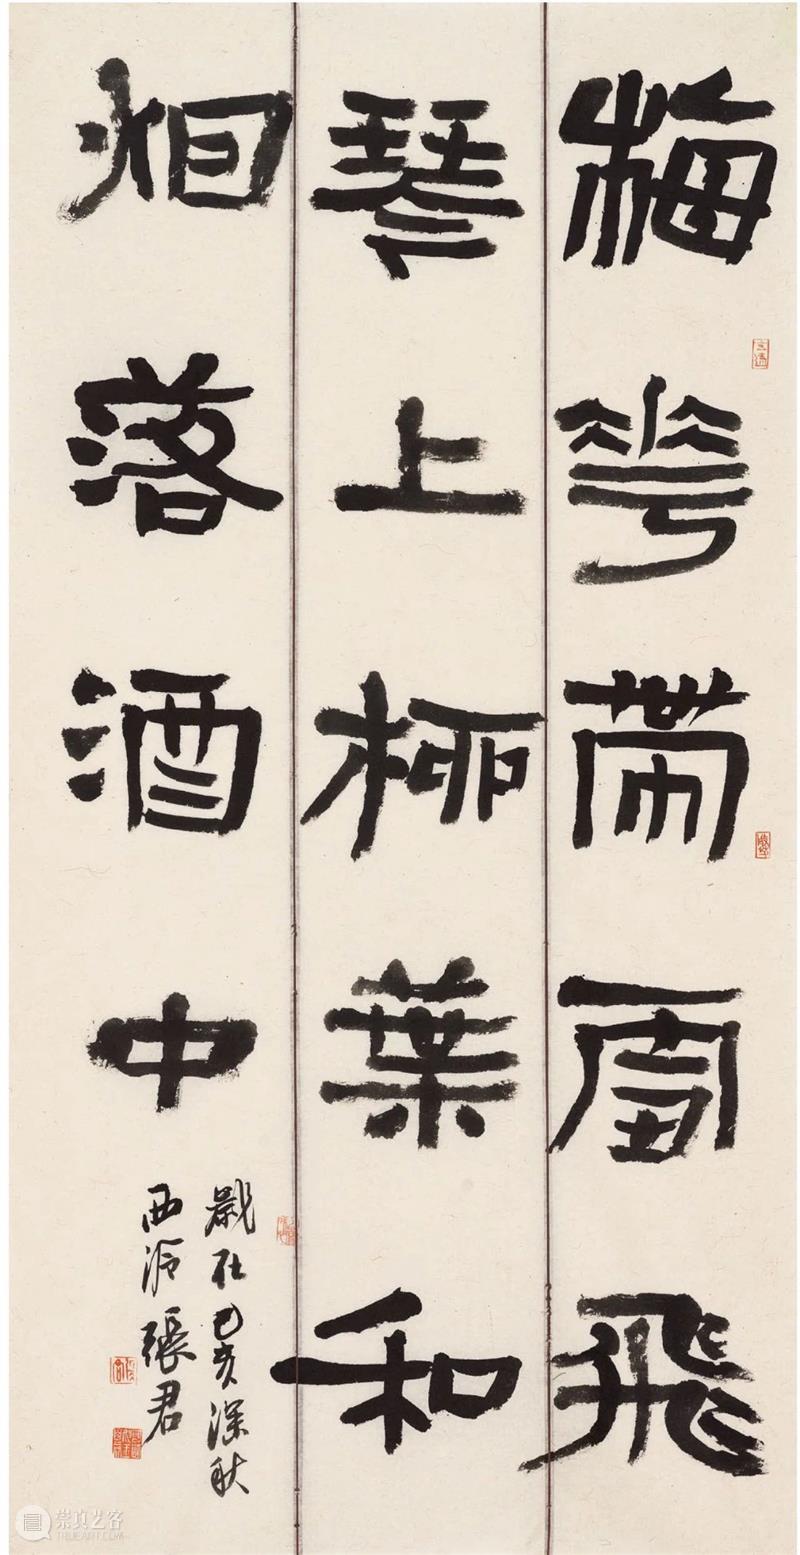 梅花帶雪飛
琴上柳葉和
烟落酒中
歲在己亥深秋
西泠張君
崇真艺客